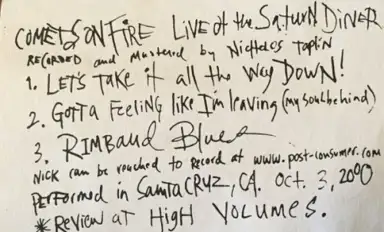 COMETS ON FIRE LIVE at the SaturN DiNER
RECORDED and Mastered by Nicholas Taplin
1. LET'S TAKE it all the Way DOWN!
2. GOTTA FeeliNG like I'm leaving (my soul behind)
3. RIMBAUD Blues
NICK can be reached to Record at www.post-consumer.com
Performed in SANTA CRUZ, CA. Oct. 3, 2000
*REVIEW AT HIGH VOLUMES.